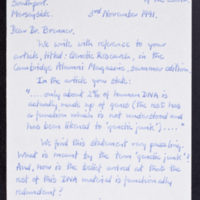 Southport,
Merseyside.
3rd November 1991.
Dear Dr. Brenner,
We write with reference to your
article, titled: Genetic Research, in the
Cambridge Alumni Magazine, summer edition.
In the article you state:
"....only about 2% of human DNA is
actually made up of genes (the rest has
a function which is not understood and
has been likened to 'genetic junk')....."
We find this statement very puzzling.
What is meant by the term 'genetic junk'?
And, how is the belief arrived at that the
rest of this DNA material is functionally
redundant?